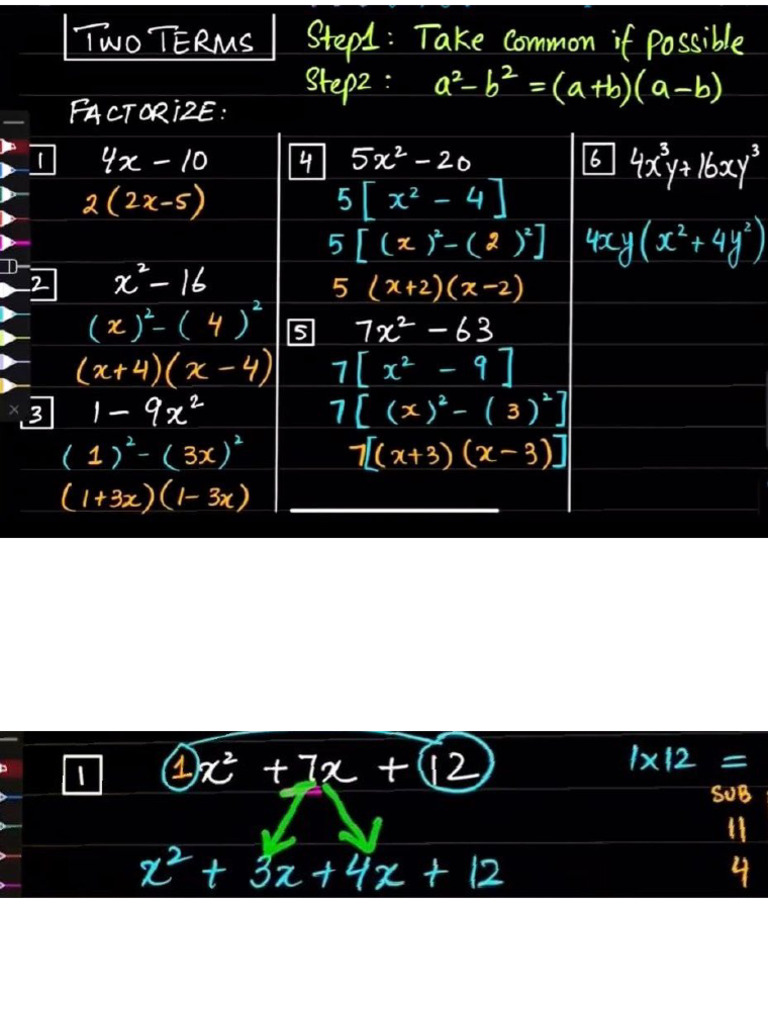 TWO TERMS
Step1: Take Common if Possible
Step2: a²-b² = (a+b)(a-b)
FACTORIZE:
1 4x - 10
2(2x-5)
2 x² - 16
(x)² - (4)²
(x+4)(x-4)
3 1 - 9x²
(1)² - (3x)²
(1+3x)(1-3x)
4 5x² - 20
5[x² - 4]
5[(x)² - (2)²]
5 (x+2)(x-2)
5 7x² - 63
7[x² - 9]
7[(x)² - (3)²]
7[(x+3)(x-3)]
6 4x³y + 16xy³
4xy(x² + 4y²)
1 1x² + 7x + 12
x² + 3x + 4x + 12
1x12 =
SUB
11
4